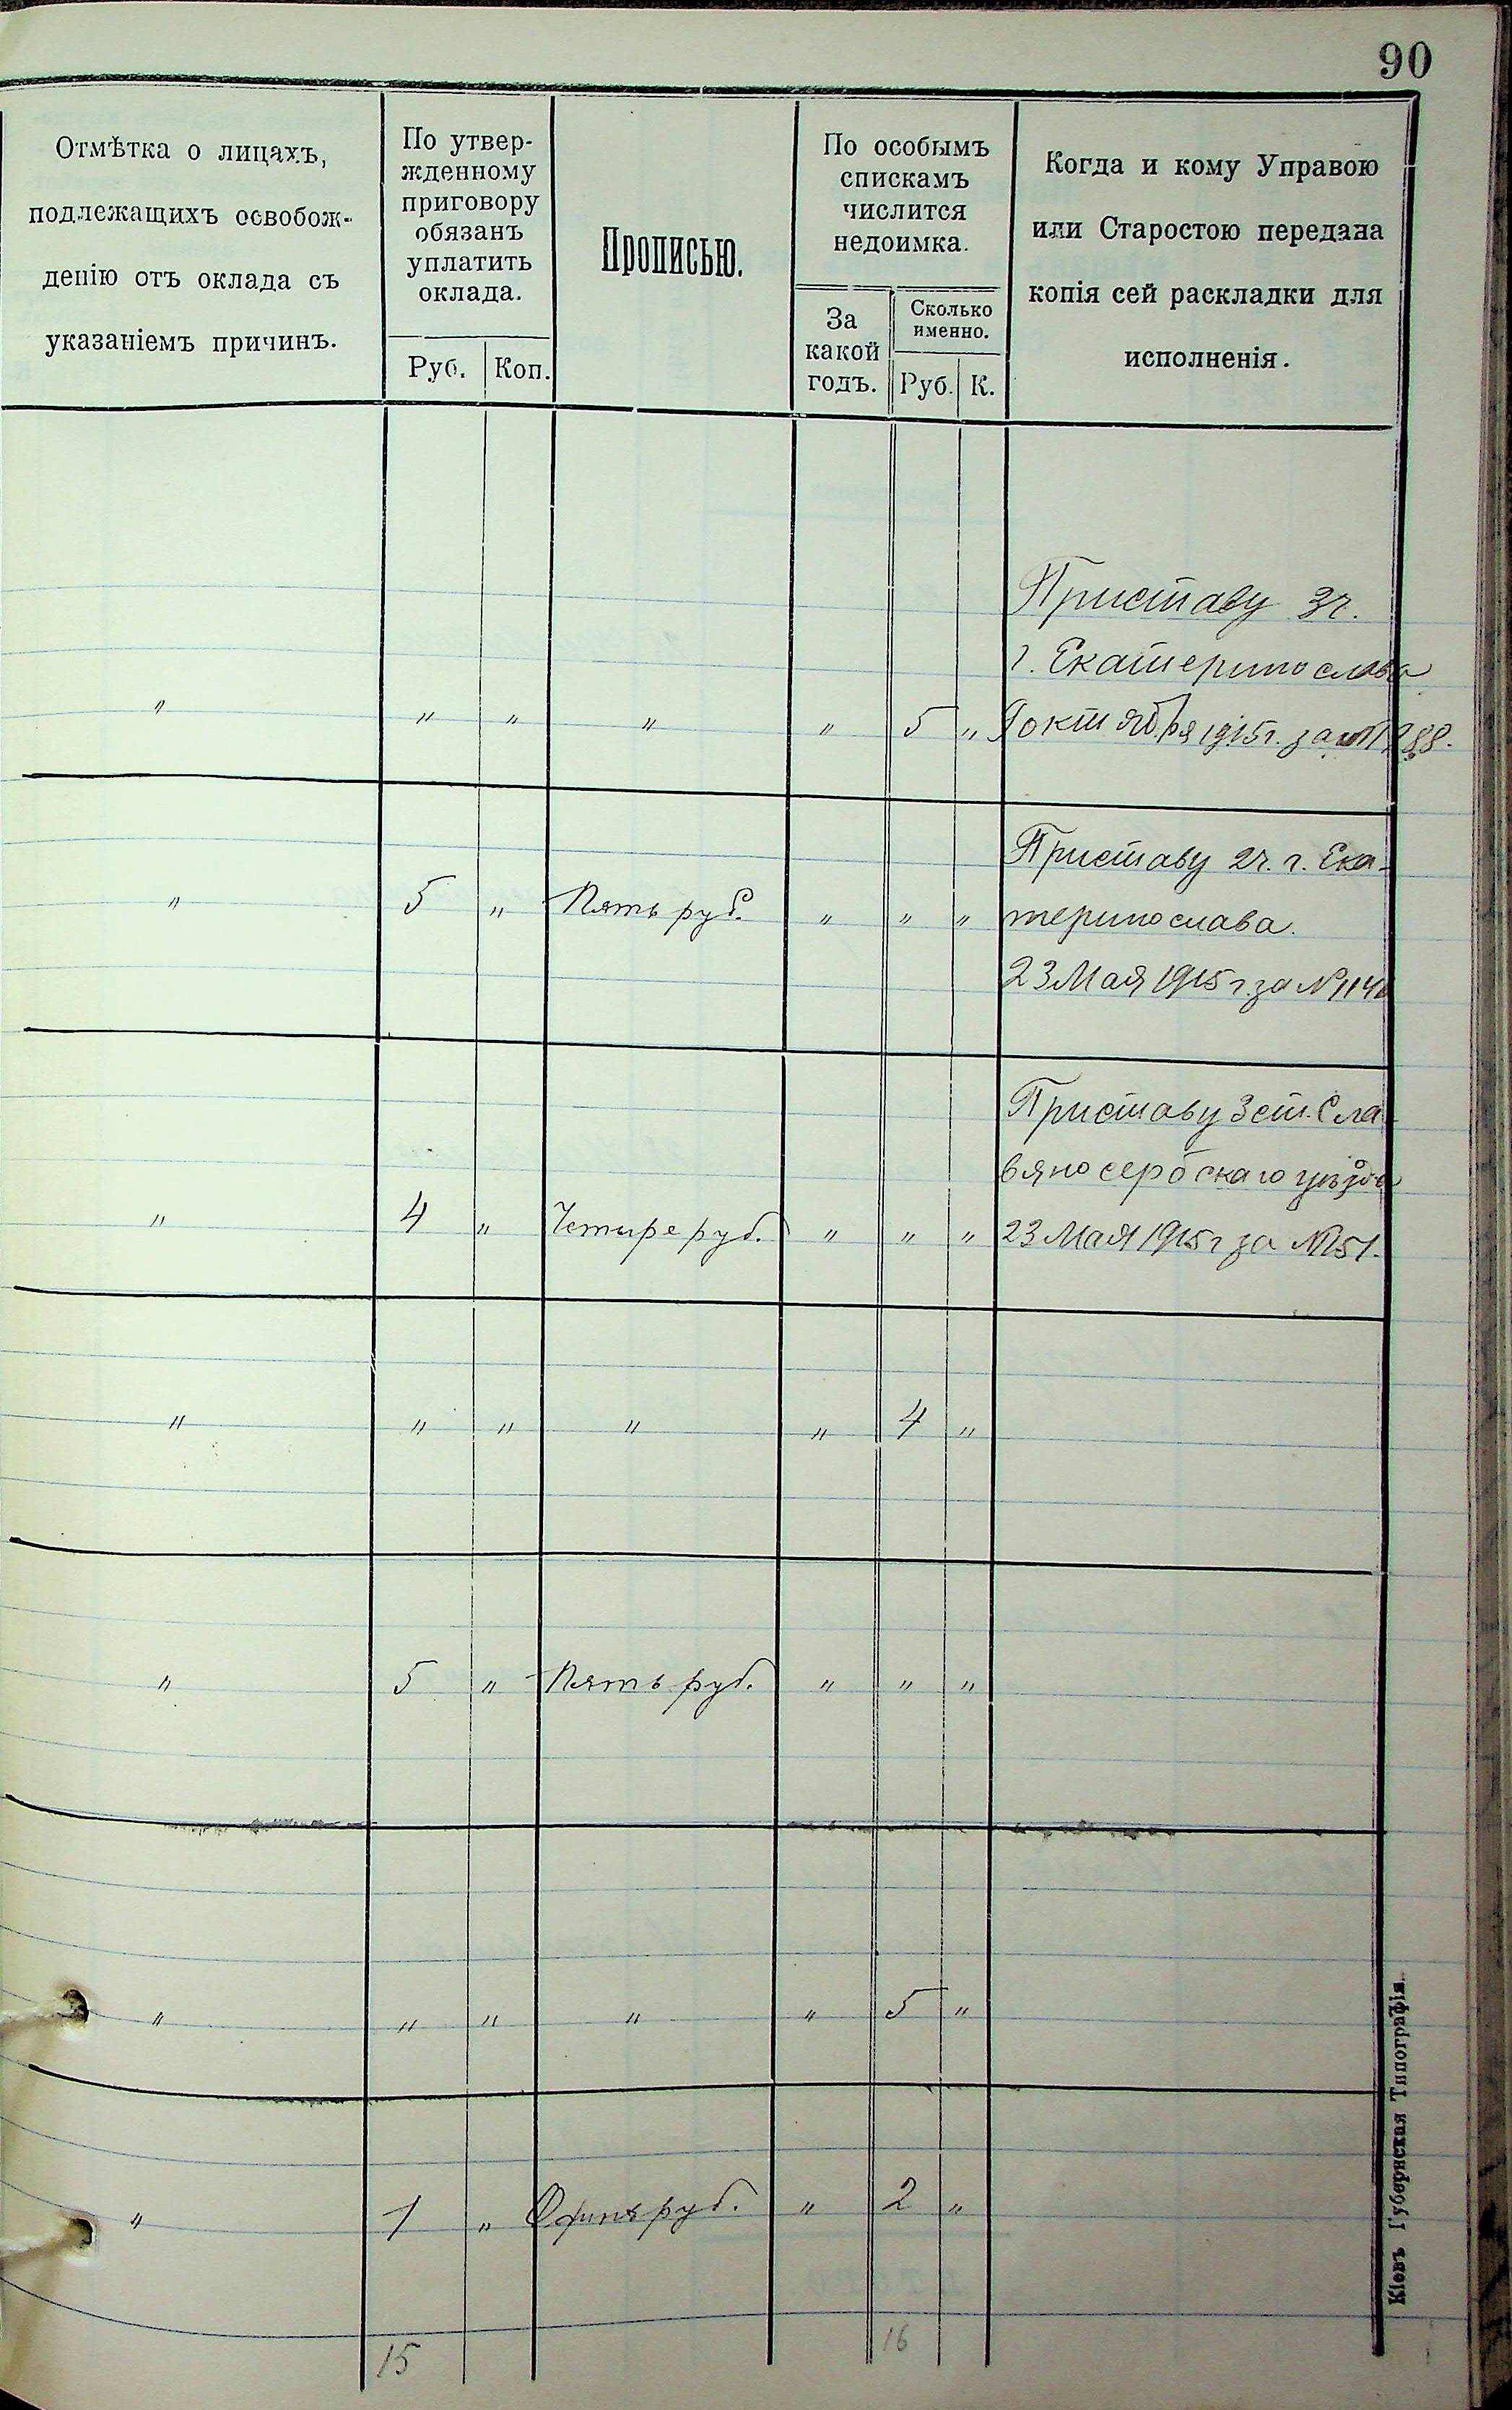 90
Отмѣтка о лицахъ,
подлежащихъ освобож-
денію отъ оклада съ
указаніемъ причинъ.
По утвер-
жденному
приговору
обязанъ
уплатить
оклада.
Руб. Коп.
Прописью.
По особымъ
спискамъ
числится
недоимка.
За
какой
годъ.
Сколько
именно.
Руб. К.
Когда и кому Управою
или Старостою передана
копія сей раскладки для
исполненія.
Приставу 3ч.
г. Екатеринослава
" " " " " 5 " октября 1915г. за
Приставу 2ч. г. Ека-
" 5 " Пять руб. " " " теринослава.
23 Мая 1915 г. за №
Приставу 3 ст. Сла-
вяносербскаго уѣзда
" 4 " Четыре руб. " " " 23 Мая 1915 г за №
" " " " " 4 "
" 5 " Пять руб. " " "
" " " " " 5 "
" 1 " Одинъ руб. " 2 "
15 16
Кіевъ Губернская Типографія.